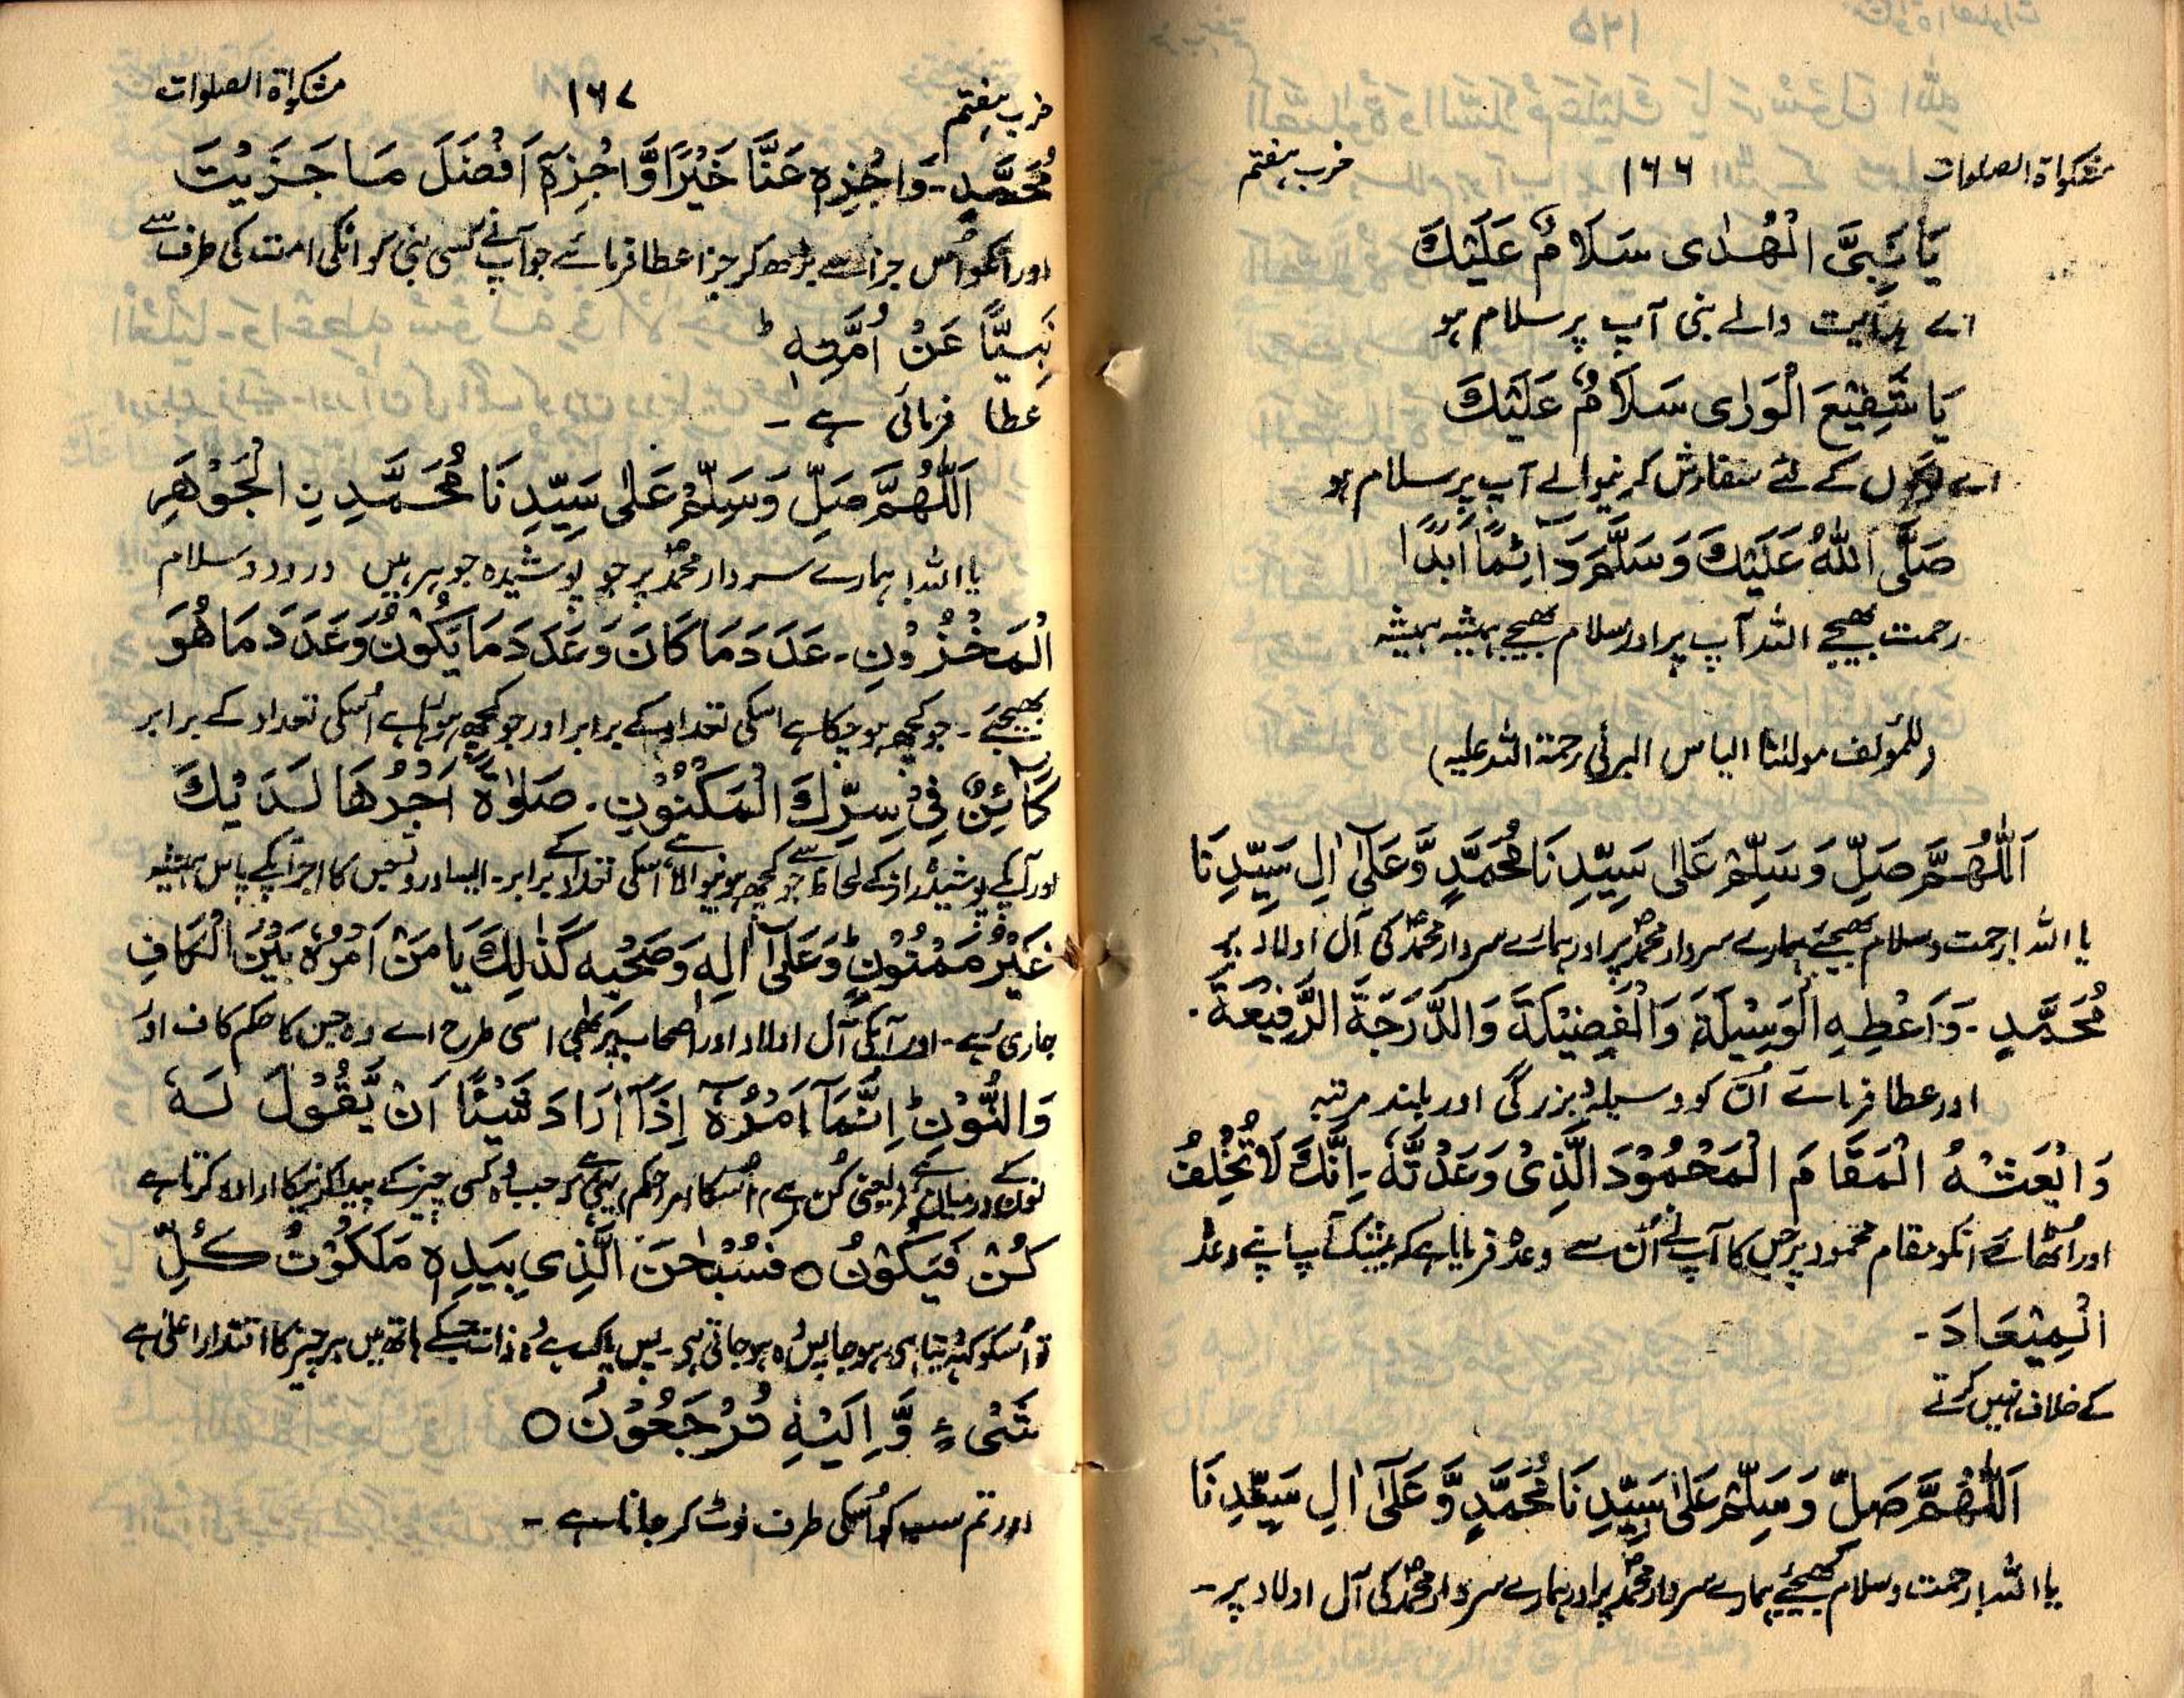 مشکواۃ الصلوات ۱۶۶ حزب ہفتم
یَا نَبِیَّ الْھُدٰی سَلَامٌ عَلَیْكَ
اے ہدایت والے نبی آپ پر سلام ہو
یَا شَفِیْعَ الْوَرٰی سَلَامٌ عَلَیْكَ
اے لوگوں کے لئے سفارش کرنیوالے آپ پر سلام ہو
صَلَّی اللّٰهُ عَلَیْكَ وَسَلَّمَ دَآئِمًا اَبَدًا
رحمت بھیجے اللہ آپ پر اور سلام بھیجے ہمیشہ ہمیشہ
(للمؤلف مولٰنا الیاس البرنی رحمۃ اللہ علیہ)
اَللّٰهُمَّ صَلِّ وَسَلِّمْ عَلٰی سَیِّدِنَا مُحَمَّدٍ وَّعَلٰٓی اٰلِ سَیِّدِنَا
یا اللہ! رحمت و سلام بھیجئے ہمارے سردار محمدؐ پر اور ہمارے سردار محمدؐ کی آل اولاد پر
مُحَمَّدٍ ۔ وَاَعْطِهِ الْوَسِیْلَةَ وَالْفَضِیْلَةَ وَالدَّرَجَةَ الرَّفِیْعَةَ ۔
اور عطا فرمائے اُن کو وسیلہ بزرگی اور بلند مرتبہ
وَابْعَثْهُ الْمَقَامَ الْمَحْمُوْدَ الَّذِیْ وَعَدْتَّهٗ ۔ اِنَّكَ لَا تُخْلِفُ
اور اُٹھائے انکو مقام محمود پر جس کا آپ نے اُن سے وعدہ فرمایا ہے کہ بیشک آپ اپنے وعدہ
الْمِیْعَادَ ۔
کے خلاف نہیں کرتے
اَللّٰهُمَّ صَلِّ وَسَلِّمْ عَلٰی سَیِّدِنَا مُحَمَّدٍ وَّعَلٰٓی اٰلِ سَیِّدِنَا
یا اللہ! رحمت و سلام بھیجئے ہمارے سردار محمدؐ پر اور ہمارے سردار محمدؐ کی آل اولاد پر ۔
حزب ہفتم ۱۶۷ مشکواۃ الصلوات
مُحَمَّدٍ ۔ وَاجْزِهٖ عَنَّا خَیْرًا وَّاجْزِهٖٓ اَفْضَلَ مَا جَزَیْتَ
اور انکو اُس جزا سے بڑھ کر جزا عطا فرمائے جو آپ نے کسی نبی کو انکی امت کی طرف سے
نَبِیًّا عَنْ اُمَّتِهٖ ؕ
عطا فرمائی ہے ۔
اَللّٰهُمَّ صَلِّ وَسَلِّمْ عَلٰی سَیِّدِنَا مُحَمَّدِ نِ الْجَوْهَرِ
یا اللہ! ہمارے سردار محمدؐ پر جو پوشیدہ جوہر ہیں درود و سلام
الْمَخْزُوْنِ ۔ عَدَدَ مَا كَانَ وَعَدَدَ مَا یَكُوْنُ وَعَدَدَ مَا هُوَ
بھیجئے ۔ جو کچھ ہو چکا ہے اسکی تعداد کے برابر اور جو کچھ ہوتا ہے اُسکی تعداد کے برابر
كَآئِنٌ فِیْ سِرِّكَ الْمَكْنُوْنِ ۔ صَلٰوةً اَجْرُهَا لَدَیْكَ
اور آپکے پوشیدہ راز کے لحاظ سے جو کچھ ہونیوالا ہے اسکی تعداد کے برابر ۔ ایسا درود جس کا اجر آپکے پاس ہمیشہ
غَیْرُ مَمْنُوْنٍ وَّعَلٰٓی اٰلِهٖ وَصَحْبِهٖ كَذٰلِكَ یَا مَنْ اَمْرُهٗ بَیْنَ الْكَافِ
جاری رہے ۔ اور آپکی آل اولاد اور اصحاب پر بھی اسی طرح اے وہ جس کا حکم کاف اور
وَالنُّوْنِ ؕ اِنَّمَآ اَمْرُهٗٓ اِذَآ اَرَادَ شَیْئًا اَنْ یَّقُوْلَ لَهٗ
نون کے درمیان ہے (یعنی کُن ہے) اُسکا امر و حکم یہی ہے کہ جب وہ کسی چیز کے پیدا کرنیکا ارادہ کرتا ہے
كُنْ فَیَكُوْنُ ○ فَسُبْحٰنَ الَّذِی بِیَدِهٖ مَلَكُوْتُ كُلِّ
تو اُسکو کہدیتا ہے ہو جا پس وہ ہو جاتی ہے ۔ پس پاک ہے وہ ذات جسکے ہاتھ میں ہر چیز کا اقتدار اعلیٰ ہے
شَیْءٍ وَّاِلَیْهِ تُرْجَعُوْنَ ○
اور تم سب کو اُسکی طرف لوٹ کر جانا ہے ۔